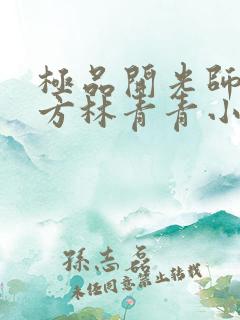 極品開光師
方林青青小
孫志磊
未任同意禁止转载